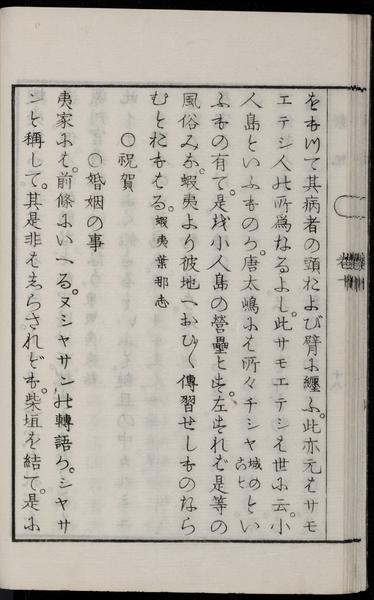 をもつて其病者の頭および臂に纏ふ。此亦元はサモ
エテシ人の所爲なるよし。此サモエテシは世に云。小
人島といふものか。唐太嶋には所々チシヤ城のといふもの
ふもの有て。是哉小人島の營壘とす。左すれは是等の
風俗みな。蝦夷より彼地へおひ〳〵傳習せしものなら
むとおもはる。蝦夷葉那志
〇祝賀
〇婚姻の事
夷家には。前條にいへる。ヌシヤサンの轉語か。シヤサ
ンと稱して。其是非はしらされども。柴垣を結て。是に